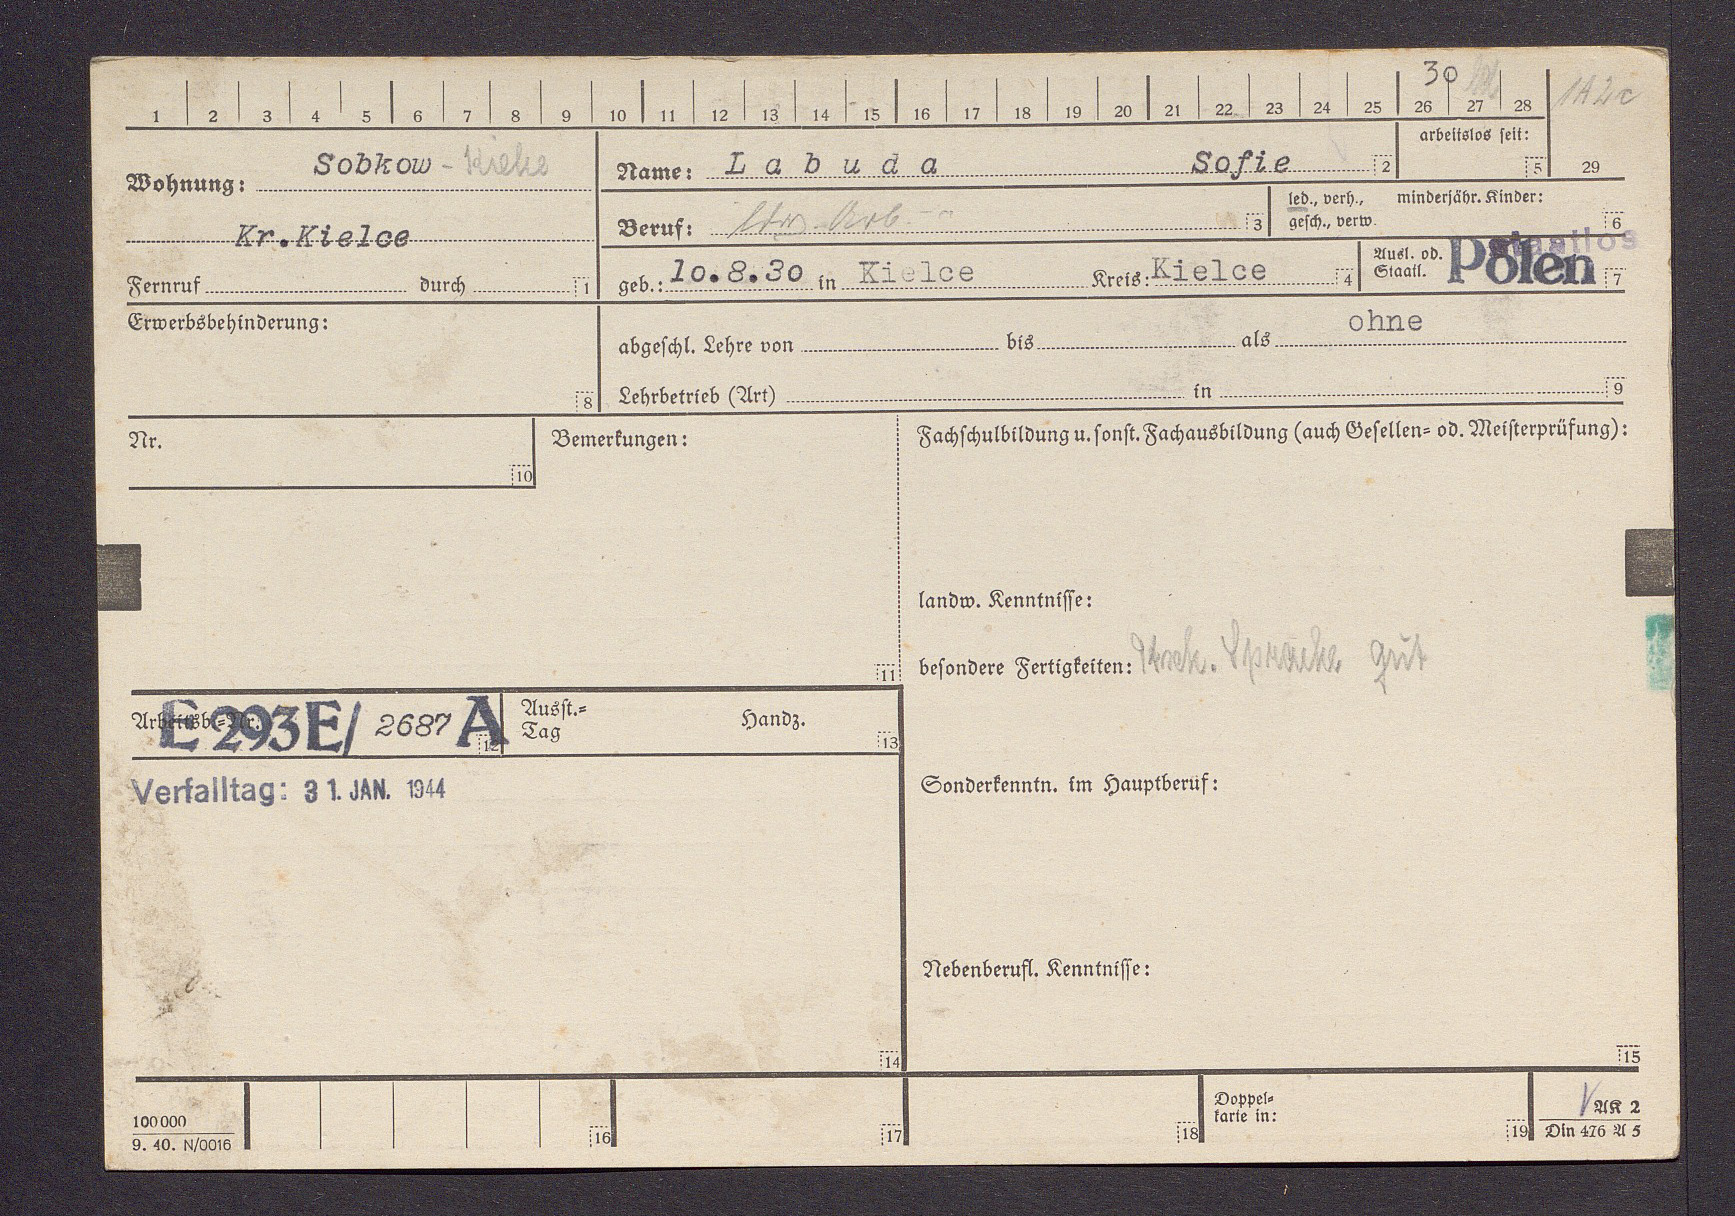 30
1 2 3 4 5 6 7 8 9 10 11 12 13 14 15 16 17 18 19 20 21 22 23 24 25 26 27 28
29
arbeitslos seit: 5
Wohnung: Sobkow - Kielce
Kr.Kielce
Fernruf durch 1
Name: Labuda Sofie 2
Beruf: 3
led., verh., minderjähr. Kinder:
gesch., verw. 6
geb.: 10.8.30 in Kielce Kreis: Kielce 4
Ausl. od.
Staatl. staatlos
Polen 7
Erwerbsbehinderung: 8
ohne
abgeschl. Lehre von bis als
Lehrbetrieb (Art) in 9
Nr. 10
Bemerkungen: 11
Fachschulbildung u. sonst. Fachausbildung (auch Gesellen= od. Meisterprüfung):
landw. Kenntnisse:
besondere Fertigkeiten: Sprache gut
Arbeitsb.=Nr. E 293 E/ 2687 A 12
Ausst.=
Tag Handz. 13
Verfalltag: 31. JAN. 1944
14
Sonderkenntn. im Hauptberuf:
Nebenberufl. Kenntnisse:
15
100 000
9. 40. N/0016
16 17 18
Doppel=
karte in: 19
AK 2
Din 476 A 5